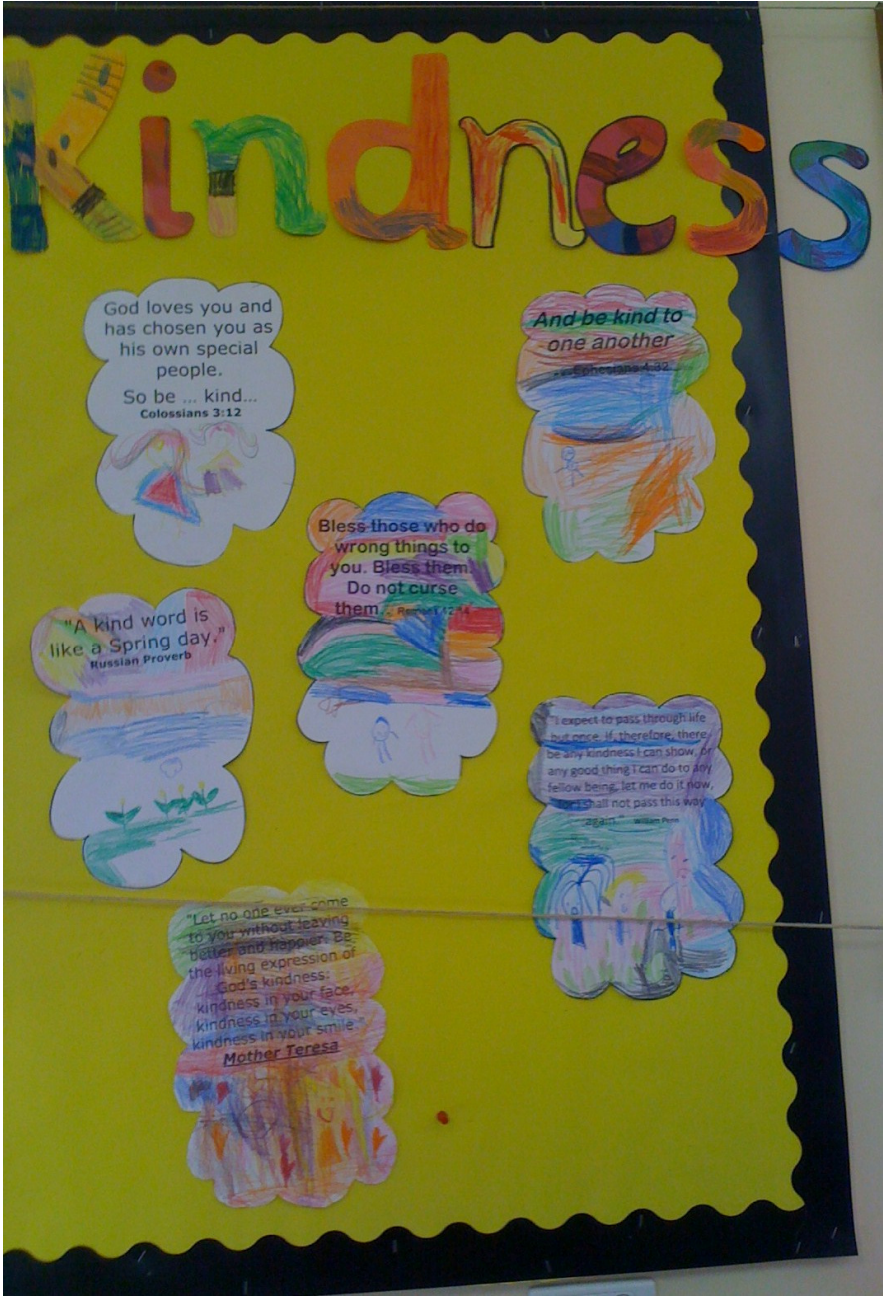 Kindness
God loves you and
has chosen you as
his own special
people.
So be ... kind...
Colossians 3:12
And be kind to
one another
Ephesians 4:32
Bless those who do
wrong things to
you. Bless them.
Do not curse
them.
"A kind word is
like a Spring day."
Russian Proverb
"I expect to pass through life
but once. If, therefore, there
be any kindness I can show, or
any good thing I can do to any
fellow being, let me do it now,
for I shall not pass this way
again." William Penn
"Let no one ever come
to you without leaving
better and happier. Be
the living expression of
God's kindness:
kindness in your face,
kindness in your eyes,
kindness in your smile."
Mother Teresa